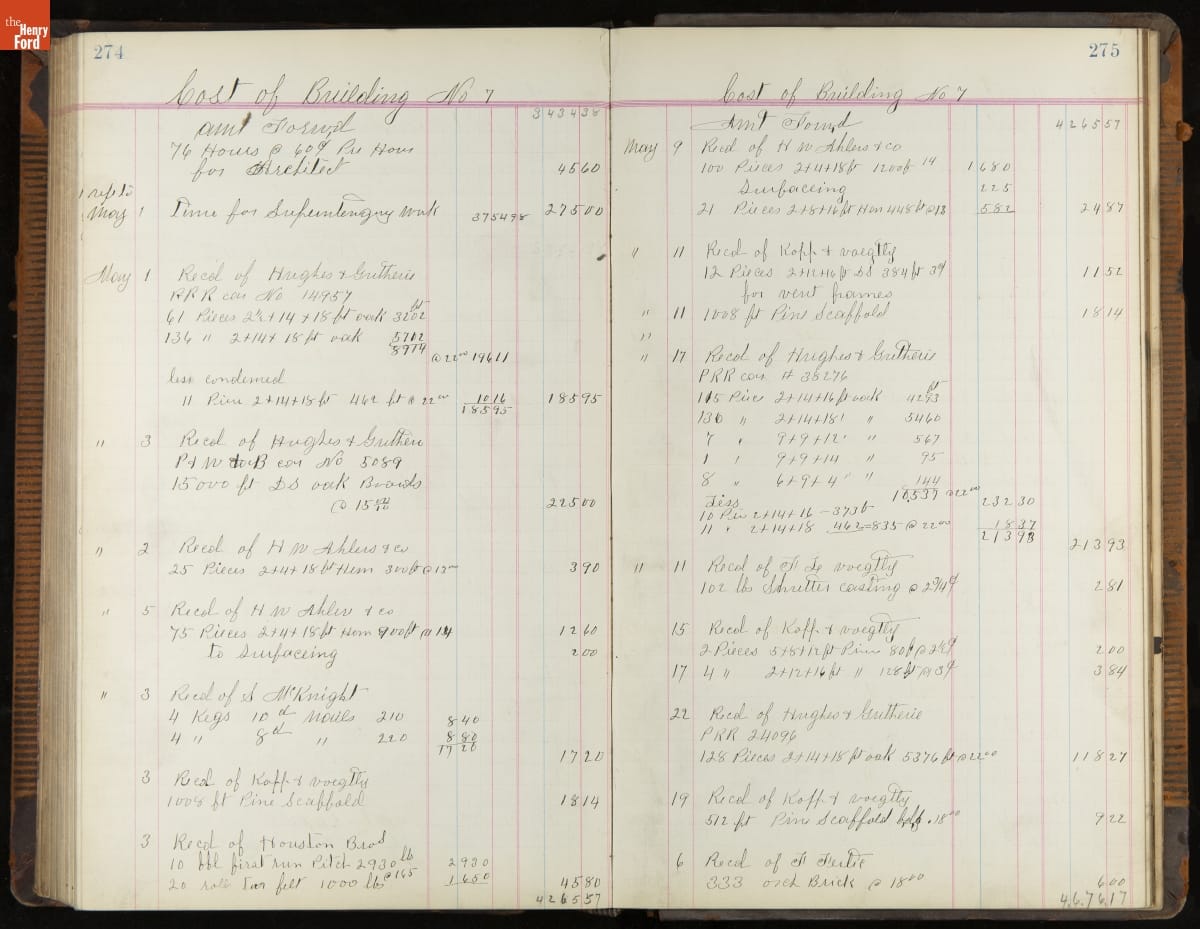 the
Henry
Ford
274
Cost of Building No 7
Amt Forwd 343438
76 Hours @ 60¢ Per Hour
for Architect 4560
up to
May 1 Time for Superintending Work 375498 27500
May 1 Recd of Hughes & Gutherie
PRR car No 14957
61 Pieces 2½+14+18 ft oak 3202 ft
136 " 2+14+18 ft oak 5712
8914 @ 22 00 19611
less condemned
11 Pices 2+14+18 ft 462 ft @ 22 00 1016 18595
18595
" 3 Recd of Hughes & Gutheri
P+W car No 5089
15000 ft DS oak Boards
@ 15 00 22500
" 2 Recd of H W Ahlers & co
25 Pieces 2+4+18 ft Hem 300 ft @ 13 00 390
" 5 Recd of H W Ahlers & co
75 Pieces 2+4+18 ft Hem 900 ft @ 14 1260
to Surfaceing 200
" 3 Recd of S McKnight
4 Kegs 10 d Nails 210 840
4 " 8 d " 220 880
1720
1720
3 Recd of Kopp & voegtly
1008 ft Pine Scaffold 1814
3 Recd of Houston Bros
10 bbl first run Pitch 2930 lb 2930
20 rolls Tar felt 1000 lbs @ 165 1650 4580
426557
275
Cost of Building No 7
Amt Forwd 426557
May 9 Recd of H W Ahlers & co
100 Pieces 2+4+18 ft 1200 ft 14 1680
Surfaceing 225
21 Pieces 2+8+16 ft Hem 448 ft @ 13 582 2487
" 11 Recd of Kopp & voegtly
12 Pieces 2+12+16 ft DS 384 ft 3¢ 1152
for vent frames
" 11 1008 ft Pine Scaffold 1814
"
" 17 Recd of Hughes & Gutherie
PRR car # 38276
115 Pices 2+14+16 ft oak 4293 ft
130 " 2+14+18' " 5460
7 " 9+9+12' " 567
1 " 9+9+14 " 95
8 " 6+9+4 " " 144
10537 @ 22 00 23230
Less
10 Pices 2+14+16 - 373 ft
11 " 2+14+18 462 = 835 @ 22 00 1837
21393 21393
" 11 Recd of F Le voegtly
102 lbs Shutter casting @ 2¾¢ 281
15 Recd of Kopp & voegtly
2 Pieces 5+8+12 ft Pine 80 ft @ 2½¢ 200
17 4 " 2+12+16 ft " 128 ft @ 3¢ 384
22 Recd of Hughes & Gutherie
PRR 24096
128 Pieces 2+14+18 ft oak 5376 ft @ 22 00 11827
19 Recd of Kopp & voegtly
512 ft Pine Scaffold 18 00 922
6 Recd of F
333 arch Brick @ 18 00 600
467617